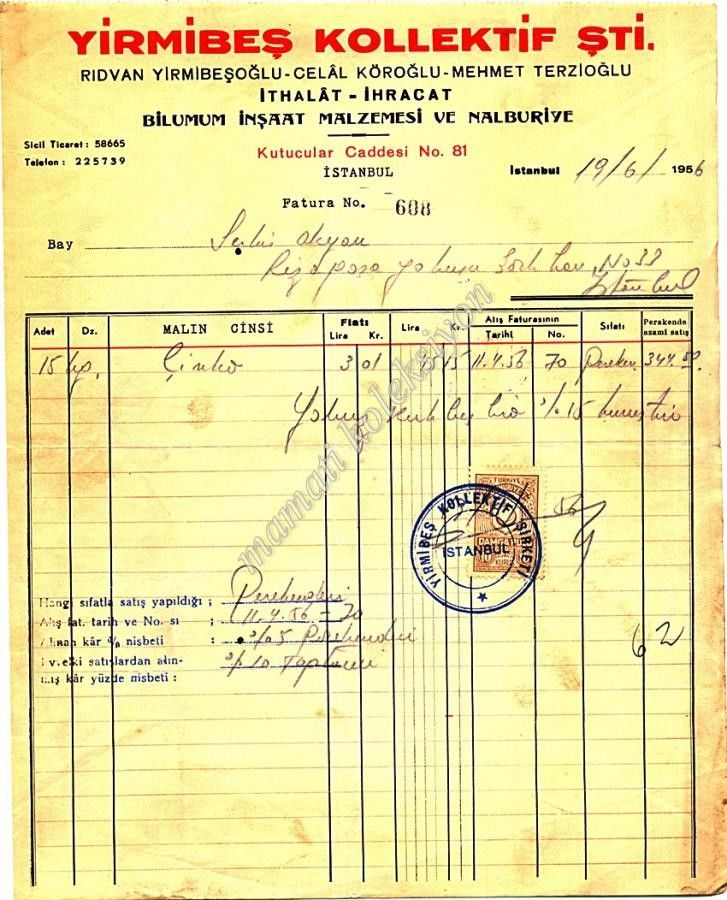 YİRMİBEŞ KOLLEKTİF ŞTİ.
RIDVAN YİRMİBEŞOĞLU-CELÂL KÖROĞLU-MEHMET TERZİOĞLU
İTHALÂT - İHRACAT
BİLUMUM İNŞAAT MALZEMESİ VE NALBURİYE
Sicil Ticaret : 58665
Telefon : 225739
Kutucular Caddesi No. 81
İSTANBUL
İstanbul 19/6/1956
Fatura No. 608
Bay
No 33
İstanbul
Adet Dz. MALIN CİNSİ Fiatı Lira Kr. Lira Kr. Alış Faturasının Tarihi No. Sıfatı Perakende azami satış
15 kg. Çinko 3 01 45 15 11.4.56 70 344.50
% 15
TÜRKİYE
DAMGA
YİRMİBEŞ KOLLEKTİF ŞİRKETİ
İSTANBUL
56
Hangi sıfatla satış yapıldığı ;
Alış fat. tarih ve No. sı ; 11.4.56 - 70
Alınan kâr % nisbeti : %5
Evvelki satışlardan alın- % 10
mış kâr yüzde nisbeti :
62
mamati koleksiyon